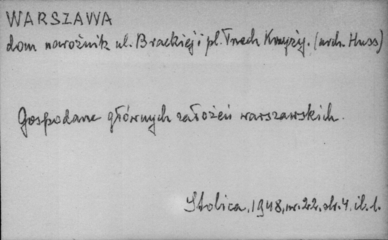 WARSZAWA
dom narożnik ul. Brackiej i pl. Trzech Krzyży. (arch. Huss)
Gospodarze głównych założeń warszawskich.
Stolica, 1948, nr. 22. str. 4. il. 1.